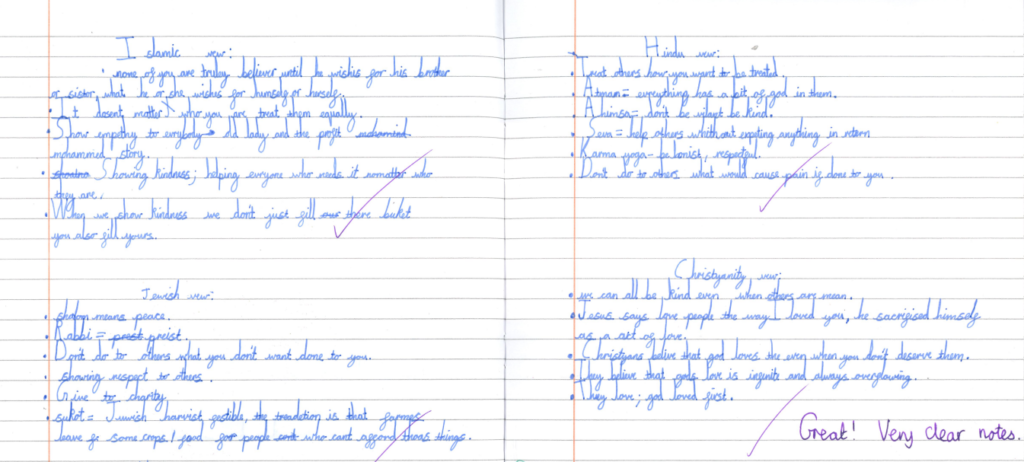 Islamic vew:
• none of you are truley believer until he wishes for his brother
or sister, what he or she wishes for himself or herself.
• It dosent matter who you are treat them equally.
• Show empathy to evrybody → old lady and the profit mohamind
mohammed story.
• Showing kindness; helping evryone who needs it nomatter who
they are.
• When we show kindness we don't just fill our there buket
you also fill yours.
Jewish vew:
• shalom means peace.
• Rabbi = preist.
• Don't do to others what you don't want done to you.
• showing respect to others.
• Give to charity
• sukot = Jewish harvist festible, the treadetion is that farmers
leave some crops / food for people who cant afford thoas things.
Hindu vew:
• Treat others how you want to be treated.
• Atman = evrything has a bit of god in them.
• Ahimsa = don't be vilant be kind.
• Seva = help others whithout expiting anything in retern
• Karma yoga - be honist, respectful.
• Don't do to others what would cause pain if done to you.
Christyanity vew:
• we can all be kind even when others are mean.
• Jesus says love people the way I loved you, he sacrifised himself
as a act of love.
• Christyans belive that god loves the even when you don't deserve them.
• They believe that gods love is infinite and always overflowing.
• They love; god loved first.
Great! Very clear notes.